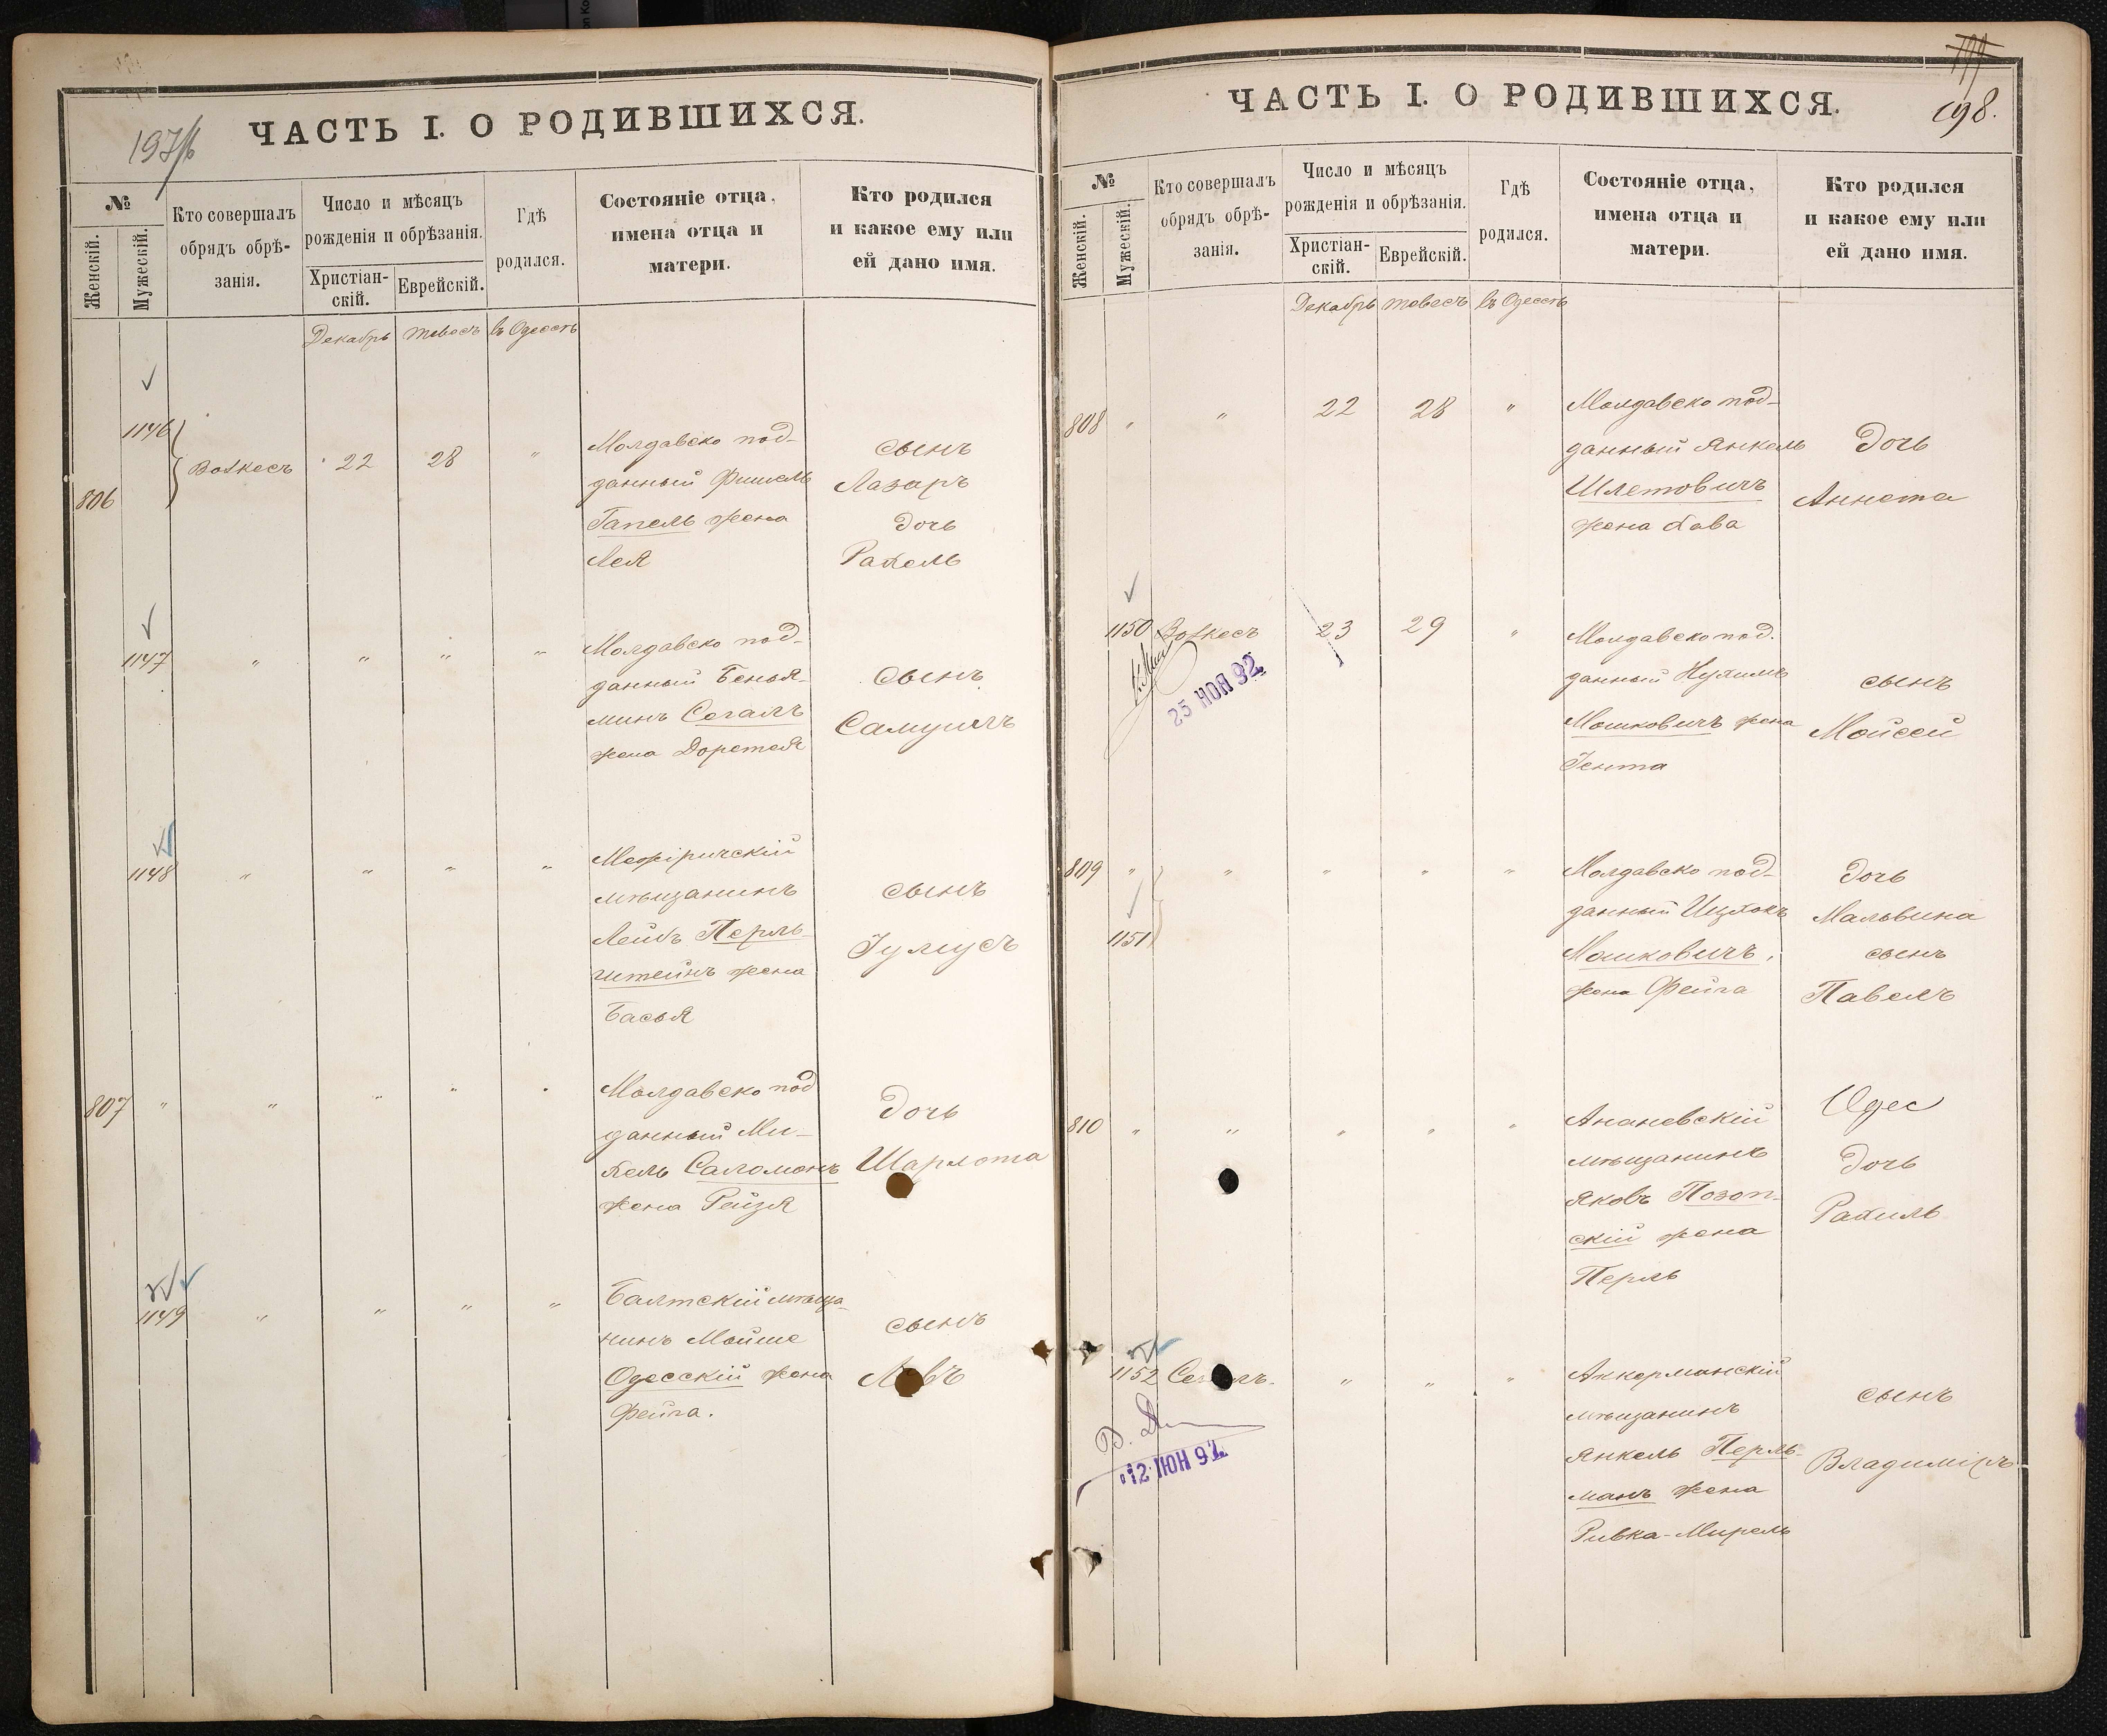 197/б
ЧАСТЬ I. О РОДИВШИХСЯ.
№
Женскій.
Мужескій.
Кто совершалъ
обрядъ обрѣ-
занія.
Число и мѣсяцъ
рожденія и обрѣзанія.
Христіан-
скій.
Еврейскій.
Гдѣ
родился.
Состояніе отца,
имена отца и
матери.
Кто родился
и какое ему или
ей дано имя.
Декабрь Тевесъ въ Одессѣ
1146
806
Волкесъ 22 28 "
Молдавско под-
данный Фишель
Гапель жена
Лея
сынъ
Лазарь
дочь
Рахель
1147 " " " "
Молдавско под-
данный Бенья-
минъ Сегалъ
жена Доротея
сынъ
Самуилъ
1148 " " " "
Межиричскій
мѣщанинъ
Лейбъ Перль-
штейнъ жена
Басья
сынъ
Іулиусъ
807 " " " " "
Молдавско под
данный Ми-
хель Саломонъ
жена Рейзя
дочь
Шарлота
1149 " " " "
Балтскій мѣща-
нинъ Мойше
Одесскій жена
Фейга.
сынъ
198.
ЧАСТЬ I. О РОДИВШИХСЯ.
№
Женскій.
Мужескій.
Кто совершалъ
обрядъ обрѣ-
занія.
Число и мѣсяцъ
рожденія и обрѣзанія.
Христіан-
скій.
Еврейскій.
Гдѣ
родился.
Состояніе отца,
имена отца и
матери.
Кто родился
и какое ему или
ей дано имя.
Декабрь Тевесъ въ Одессѣ
808 " " 22 28 "
Молдавско под-
данный Янкель
Шлетовичъ
жена Хава
дочь
Аннета
1150 Волкесъ 23 29 "
25 НОЯ 92.
Молдавско под.
данный Нухимъ
Мошковичъ жена
Гента
сынъ
Мойсей
809 " " " " "
1151
Молдавско под-
данный Ицхокъ
Мошковичъ,
жена Фейга
дочь
Мальвина
сынъ
Павелъ
810 " " " " "
Ананевскій
мѣщанинъ
Яковъ Позоп-
скій жена
Перль
Одес
дочь
Рахиль
1152 " " "
12 ІЮН 92.
Аккерманскій
мѣщанинъ
Янкель Перль-
манъ жена
Ривка-Мирель
сынъ
Владиміръ